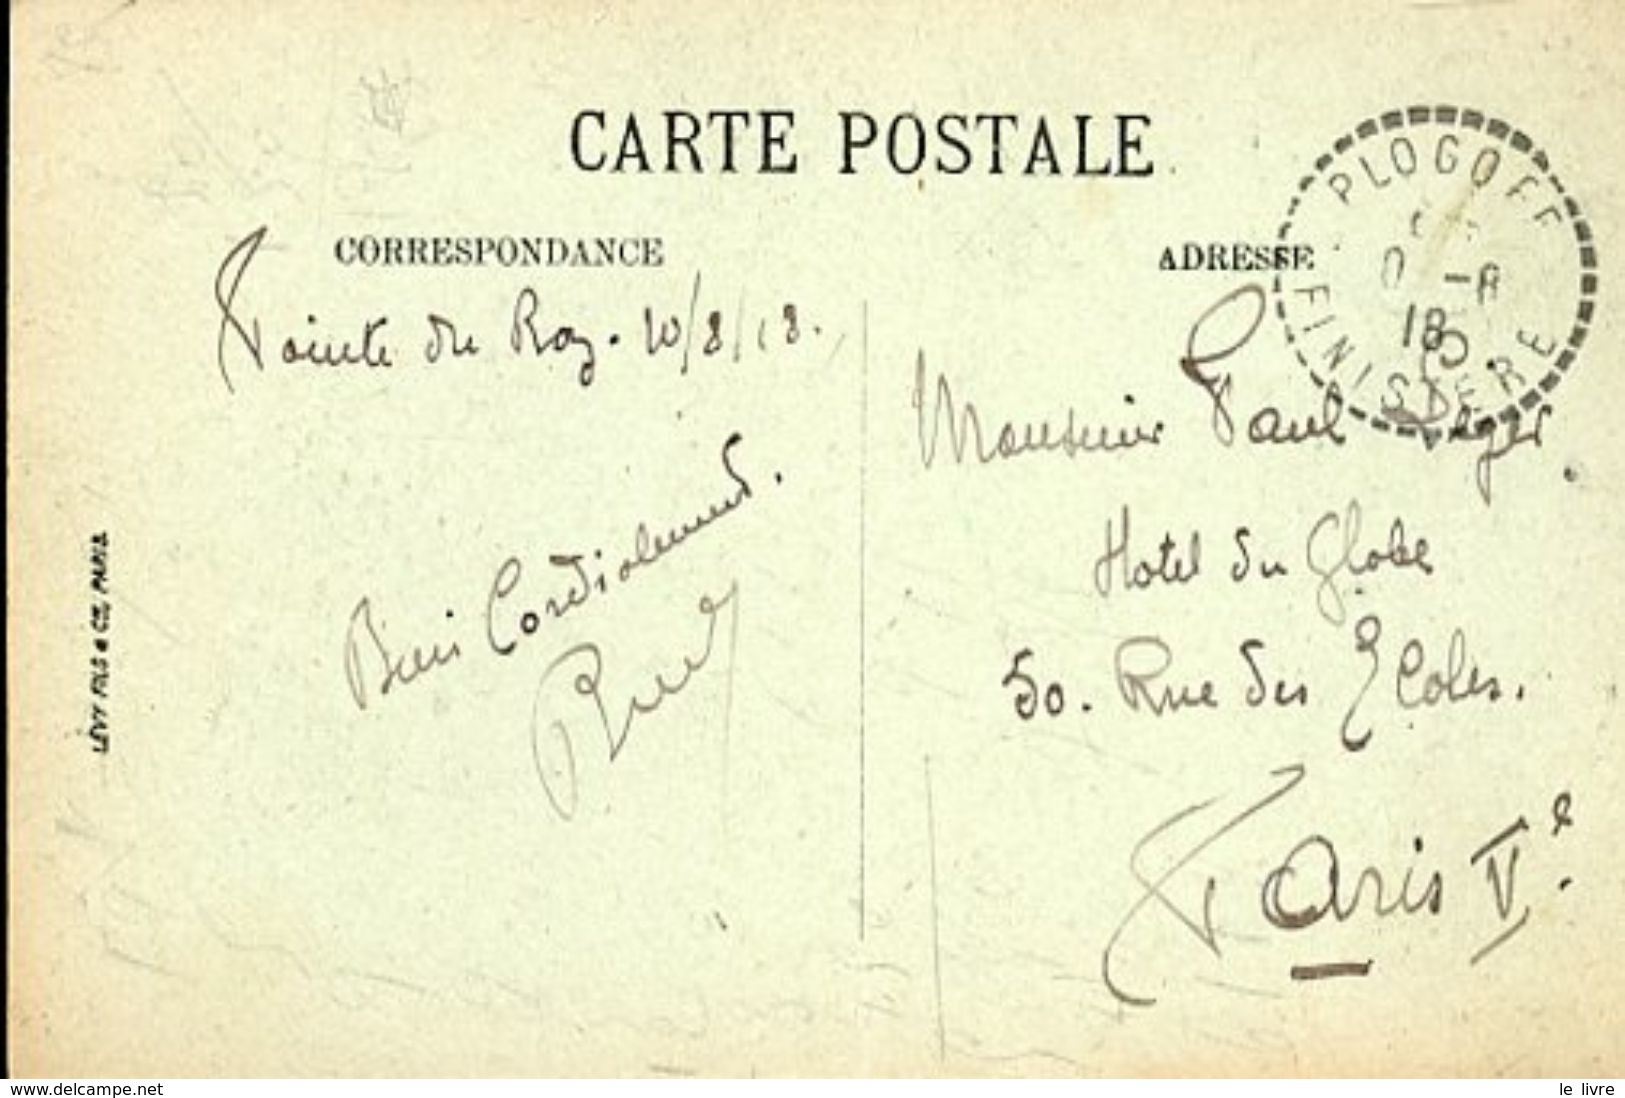 CARTE POSTALE
CORRESPONDANCE
Pointe du Raz. 10/8/18.
Bien Cordialement.
LÉVY FILS & CIE, PARIS
ADRESSE
PLOGOFF
18
FINISTERE
Monsieur Paul Leger.
Hotel du Globe
50. Rue des Ecoles.
Paris Ve.
www.delcampe.net
le livre